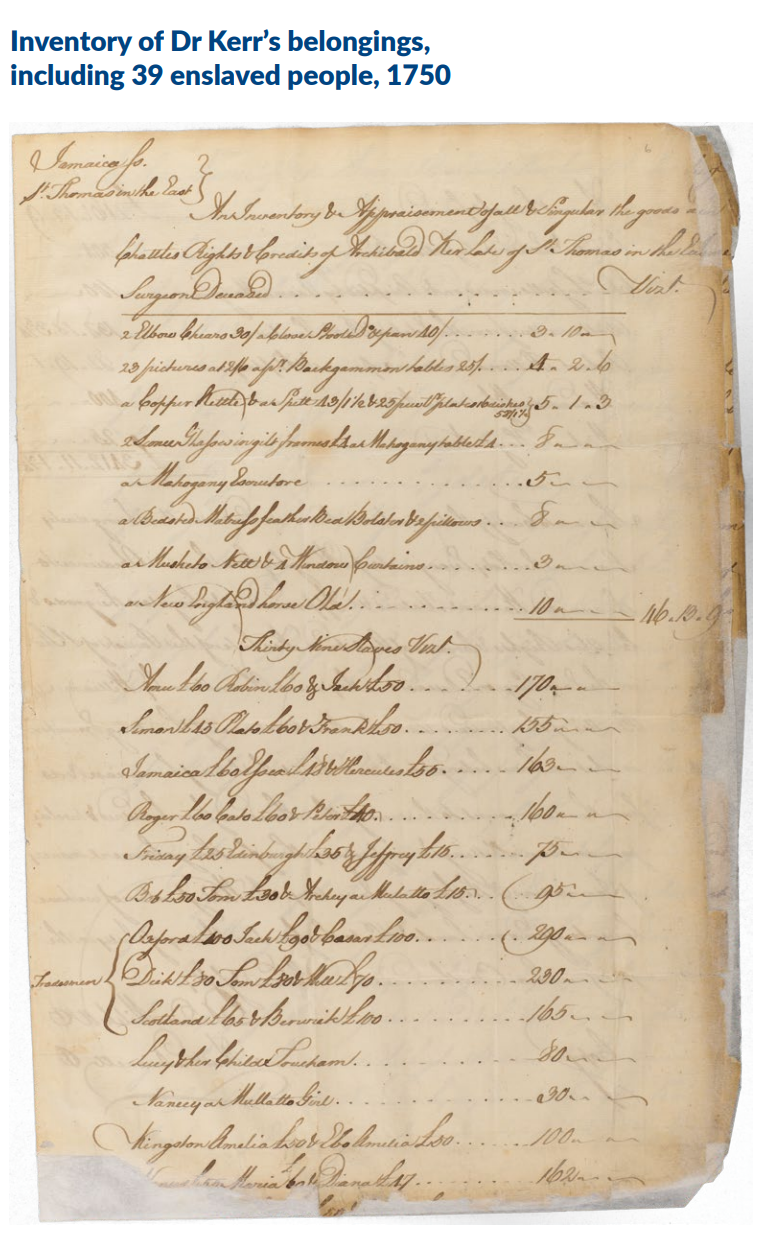 Inventory of Dr Kerr’s belongings,
including 39 enslaved people, 1750
Jamaica Ss.
St. Thomas in the East
An Inventory & Appraisement of all & Singular the goods
Chattles Rights & Credits of Archibald Ker late of St. Thomas in the
Surgeon Deceased Vizt.
2 Elbow Chears 30/ a Close Stoole 40/ 3 - 10
23 pictures a Backgammon tables 25/. 4 - 2 - 6
a Copper Kettle & a Spitt 43/1½ & 25 plates 5 - 1 - 3
2 Glasses in gilt frames £4 a Mahogany table £4 8
a Mahogany Escrutore 5
a Bedsted Matrass feather Bed Bolster & 2 pillows 8
a Musketo Nett & 4 Window Curtains 3
a New England horse Old 10 46 - 13 - 9
Thirty Nine Slaves Vizt.
£60 Robin £60 & Jack £50 170
Simon £45 Plato £60 & Frank £50 155
Jamaica £60 Essex £48 & Hercules £55 163
Roger £60 Cato £60 & Peter £40 160
Friday £25 Edinburgh £35 & Jeffrey £15 75
£50 Tom £30 & Archey a Mulatto £15 95
Oxford £100 Jack £90 & Cesar £100 290
Tradesmen
Dick £80 Tom £80 & Will £70 230
Scotland £65 & Berwick £100 165
Lucy & her Child 80
Nancy a Mullatto Girl 30
Kingston Amelia £50 & Ebo Amelia £50 100
Maria & Diana £47 162